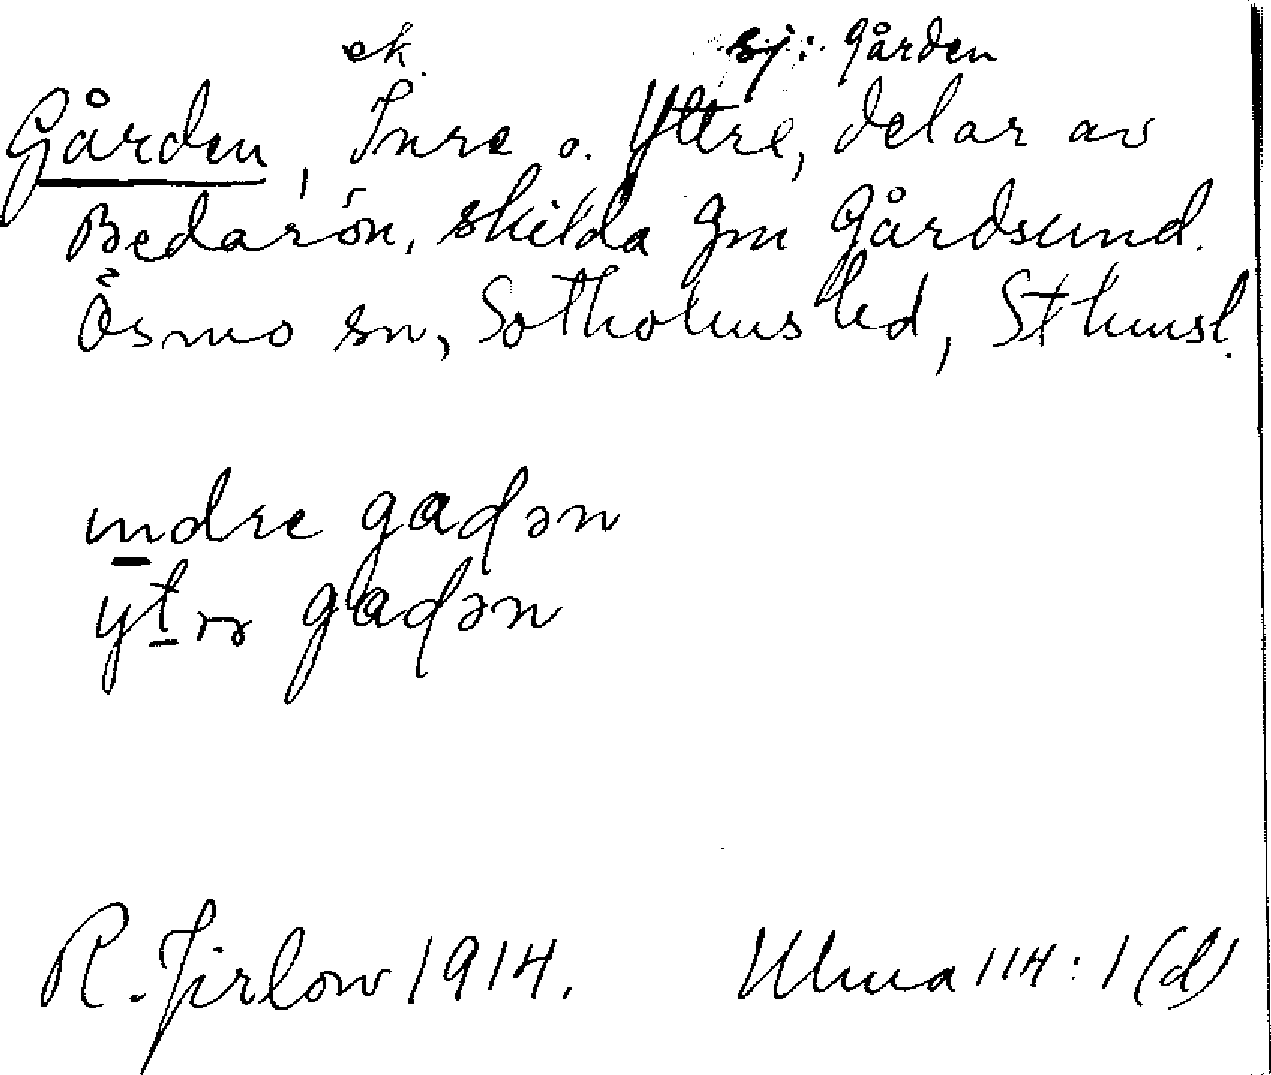 ek. sj: Gården
Gården, Inre o. Yttre, delar av
Bedarön, skilda gm Gårdsund.
Ösmo sn, Sotholms hd, Sthmsl.
indre gadən
ytrə gadən
R. Jirlow 1914. Ulma 114:1(d)